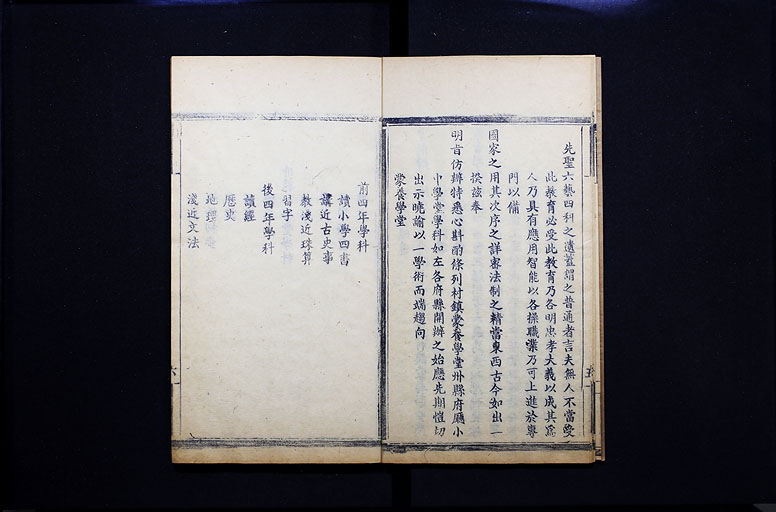 先聖六藝四科之遺蓋謂之普通者言夫無人不當受
此教育必受此教育乃各明忠孝大義以成其爲
人乃具有應用智能以各操職業乃可上進於專
門以備
國家之用其次序之詳審法制之精當東西古今如出一
揆茲奉
明旨仿辦特悉心斟酌條列村鎮蒙養學堂州縣府廳小
中學堂學科如左各府縣開辦之始應先期愷切
出示曉諭以一學術而端趨向
蒙養學堂
前四年學科
讀小學四書
講近古史事
教淺近珠算
習字
後四年學科
讀經
歷史
地理
淺近文法